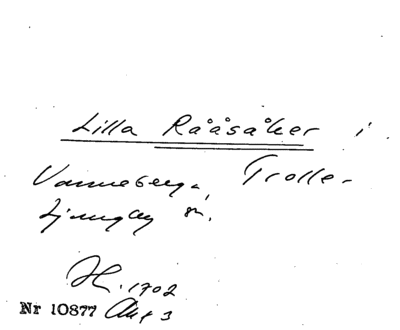 Lilla Rååsåker i
Vanneberga, Trolle-
Ljungby sn.
H. 1702
Nr 10877 Akt 3